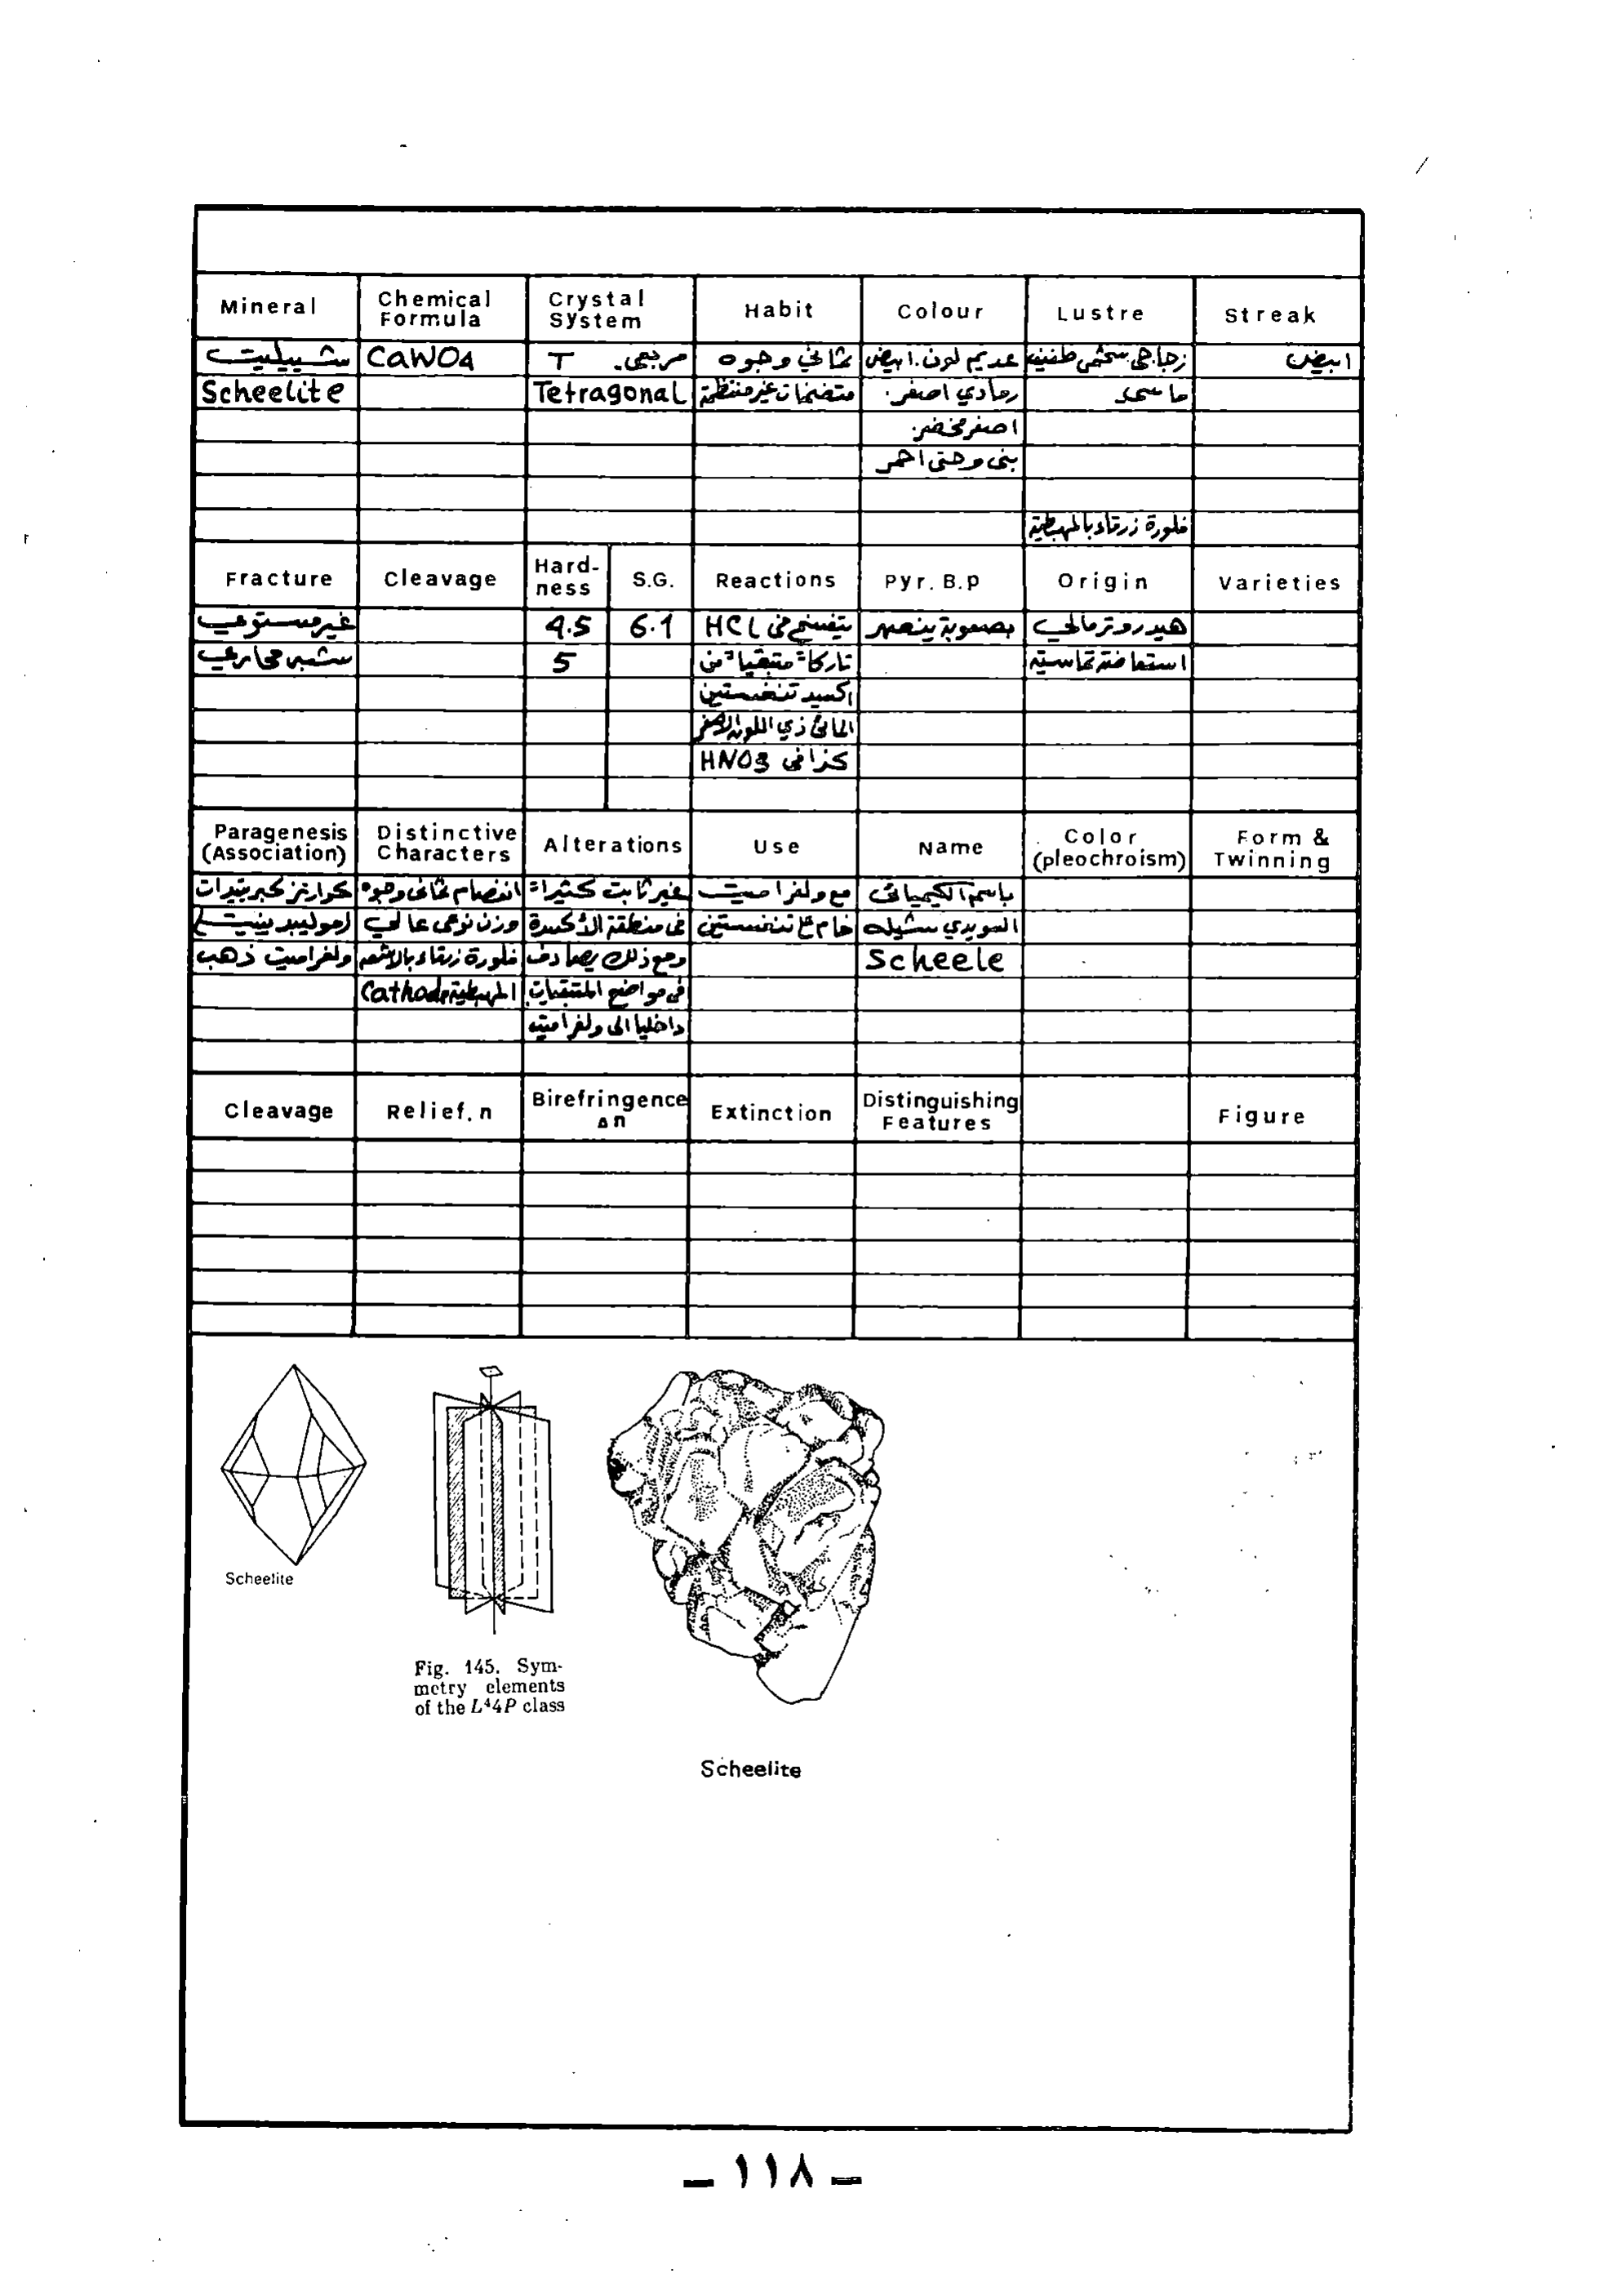 Mineral | Chemical Formula | Crystal System | Habit | Colour | Lustre | Streak
شييليت | CaWO4 | مربعي. T | ثماني وجوه | عديم لون. ابيض | زجاجي شحمي طفيف | ابيض
Scheelite | Tetragonal | متضخمات غير منتظمة | رمادي اصفر. | ماسي
اصفر مخضر.
بني وحتى احمر
فلورة زرقاء بالمهبطية
Fracture | Cleavage | Hard-ness | S.G. | Reactions | Pyr. B.p | Origin | Varieties
غير مستوي | 4.5 | 6.1 | يتفسخ في HCl | بصعوبة ينصهر | هيدروترمالي
شبه محاري | 5 | تاركاً متبقياً من | استعاضة تماسية
اكسيد تنغستين
المائي ذي اللون الاصفر
كذا في HNO3
Paragenesis (Association) | Distinctive Characters | Alterations | Use | Name | Color (pleochroism) | Form & Twinning
كوارتز كبريتيدات | انفصام ثماني وجوه | غير ثابت كثيراً | مع ولفراميت | باسم الكيميائي
(موليبدينيت) | وزن نوعي عالي | في منطقة الأكسدة | خام تنغستين | السويدي شيله
ولفراميت ذهب | فلورة زرقاء بالاشعة | ومع ذلك يصادف | Scheele
المهبطية Cathode | في مواضع المتبقيات
داخليا الى ولفراميت
Cleavage | Relief. n | Birefringence Δn | Extinction | Distinguishing Features | Figure
Scheelite
Fig. 145. Sym-
metry elements
of the L⁴4P class
Scheelite
– ١١٨ –